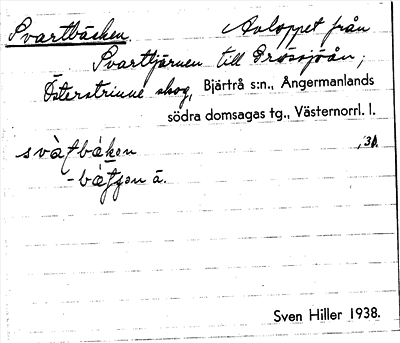 Svartbäcken. Avloppet från
Svarttjärnen till Grössjöån;
Österstrinne skog, Bjärtrå s:n., Ångermanlands
södra domsagas tg., Västernorrl. l.
bäkọn
ä.
Sven Hiller 1938.